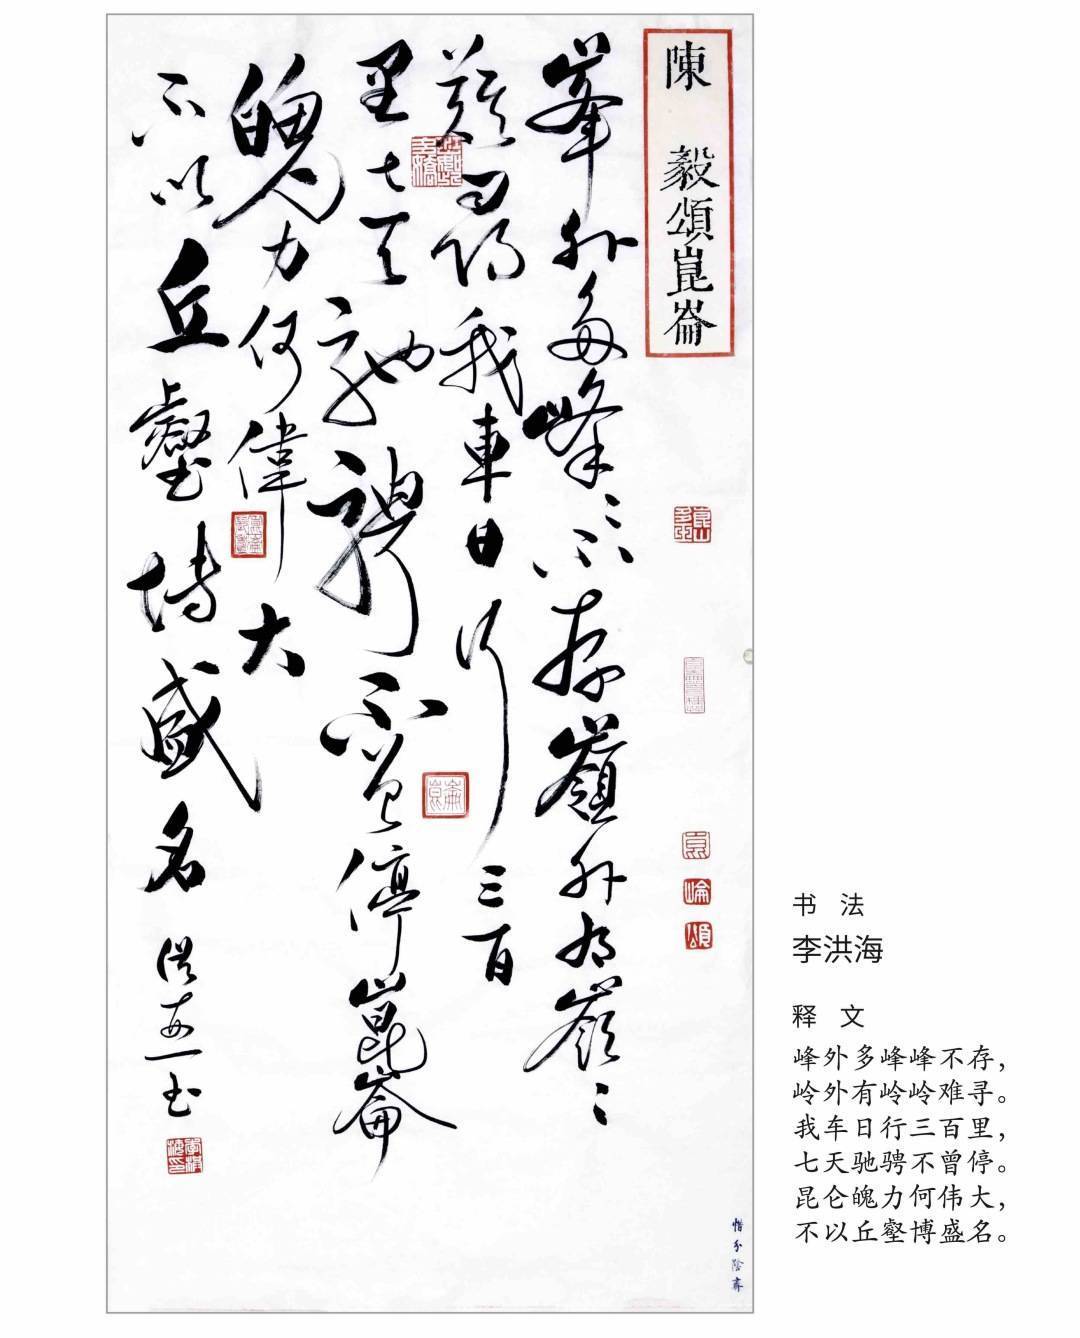 陳毅頌崑崙
峯外多峰〻不存嶺外有嶺〻
難尋我車日行三百
里七天馳騁不曾停崑崙
魄力何偉大
不以丘壑博盛名
洪海书
惜分陰齋
书 法
李洪海
释 文
峰外多峰峰不存，
岭外有岭岭难寻。
我车日行三百里，
七天驰骋不曾停。
昆仑魄力何伟大，
不以丘壑博盛名。